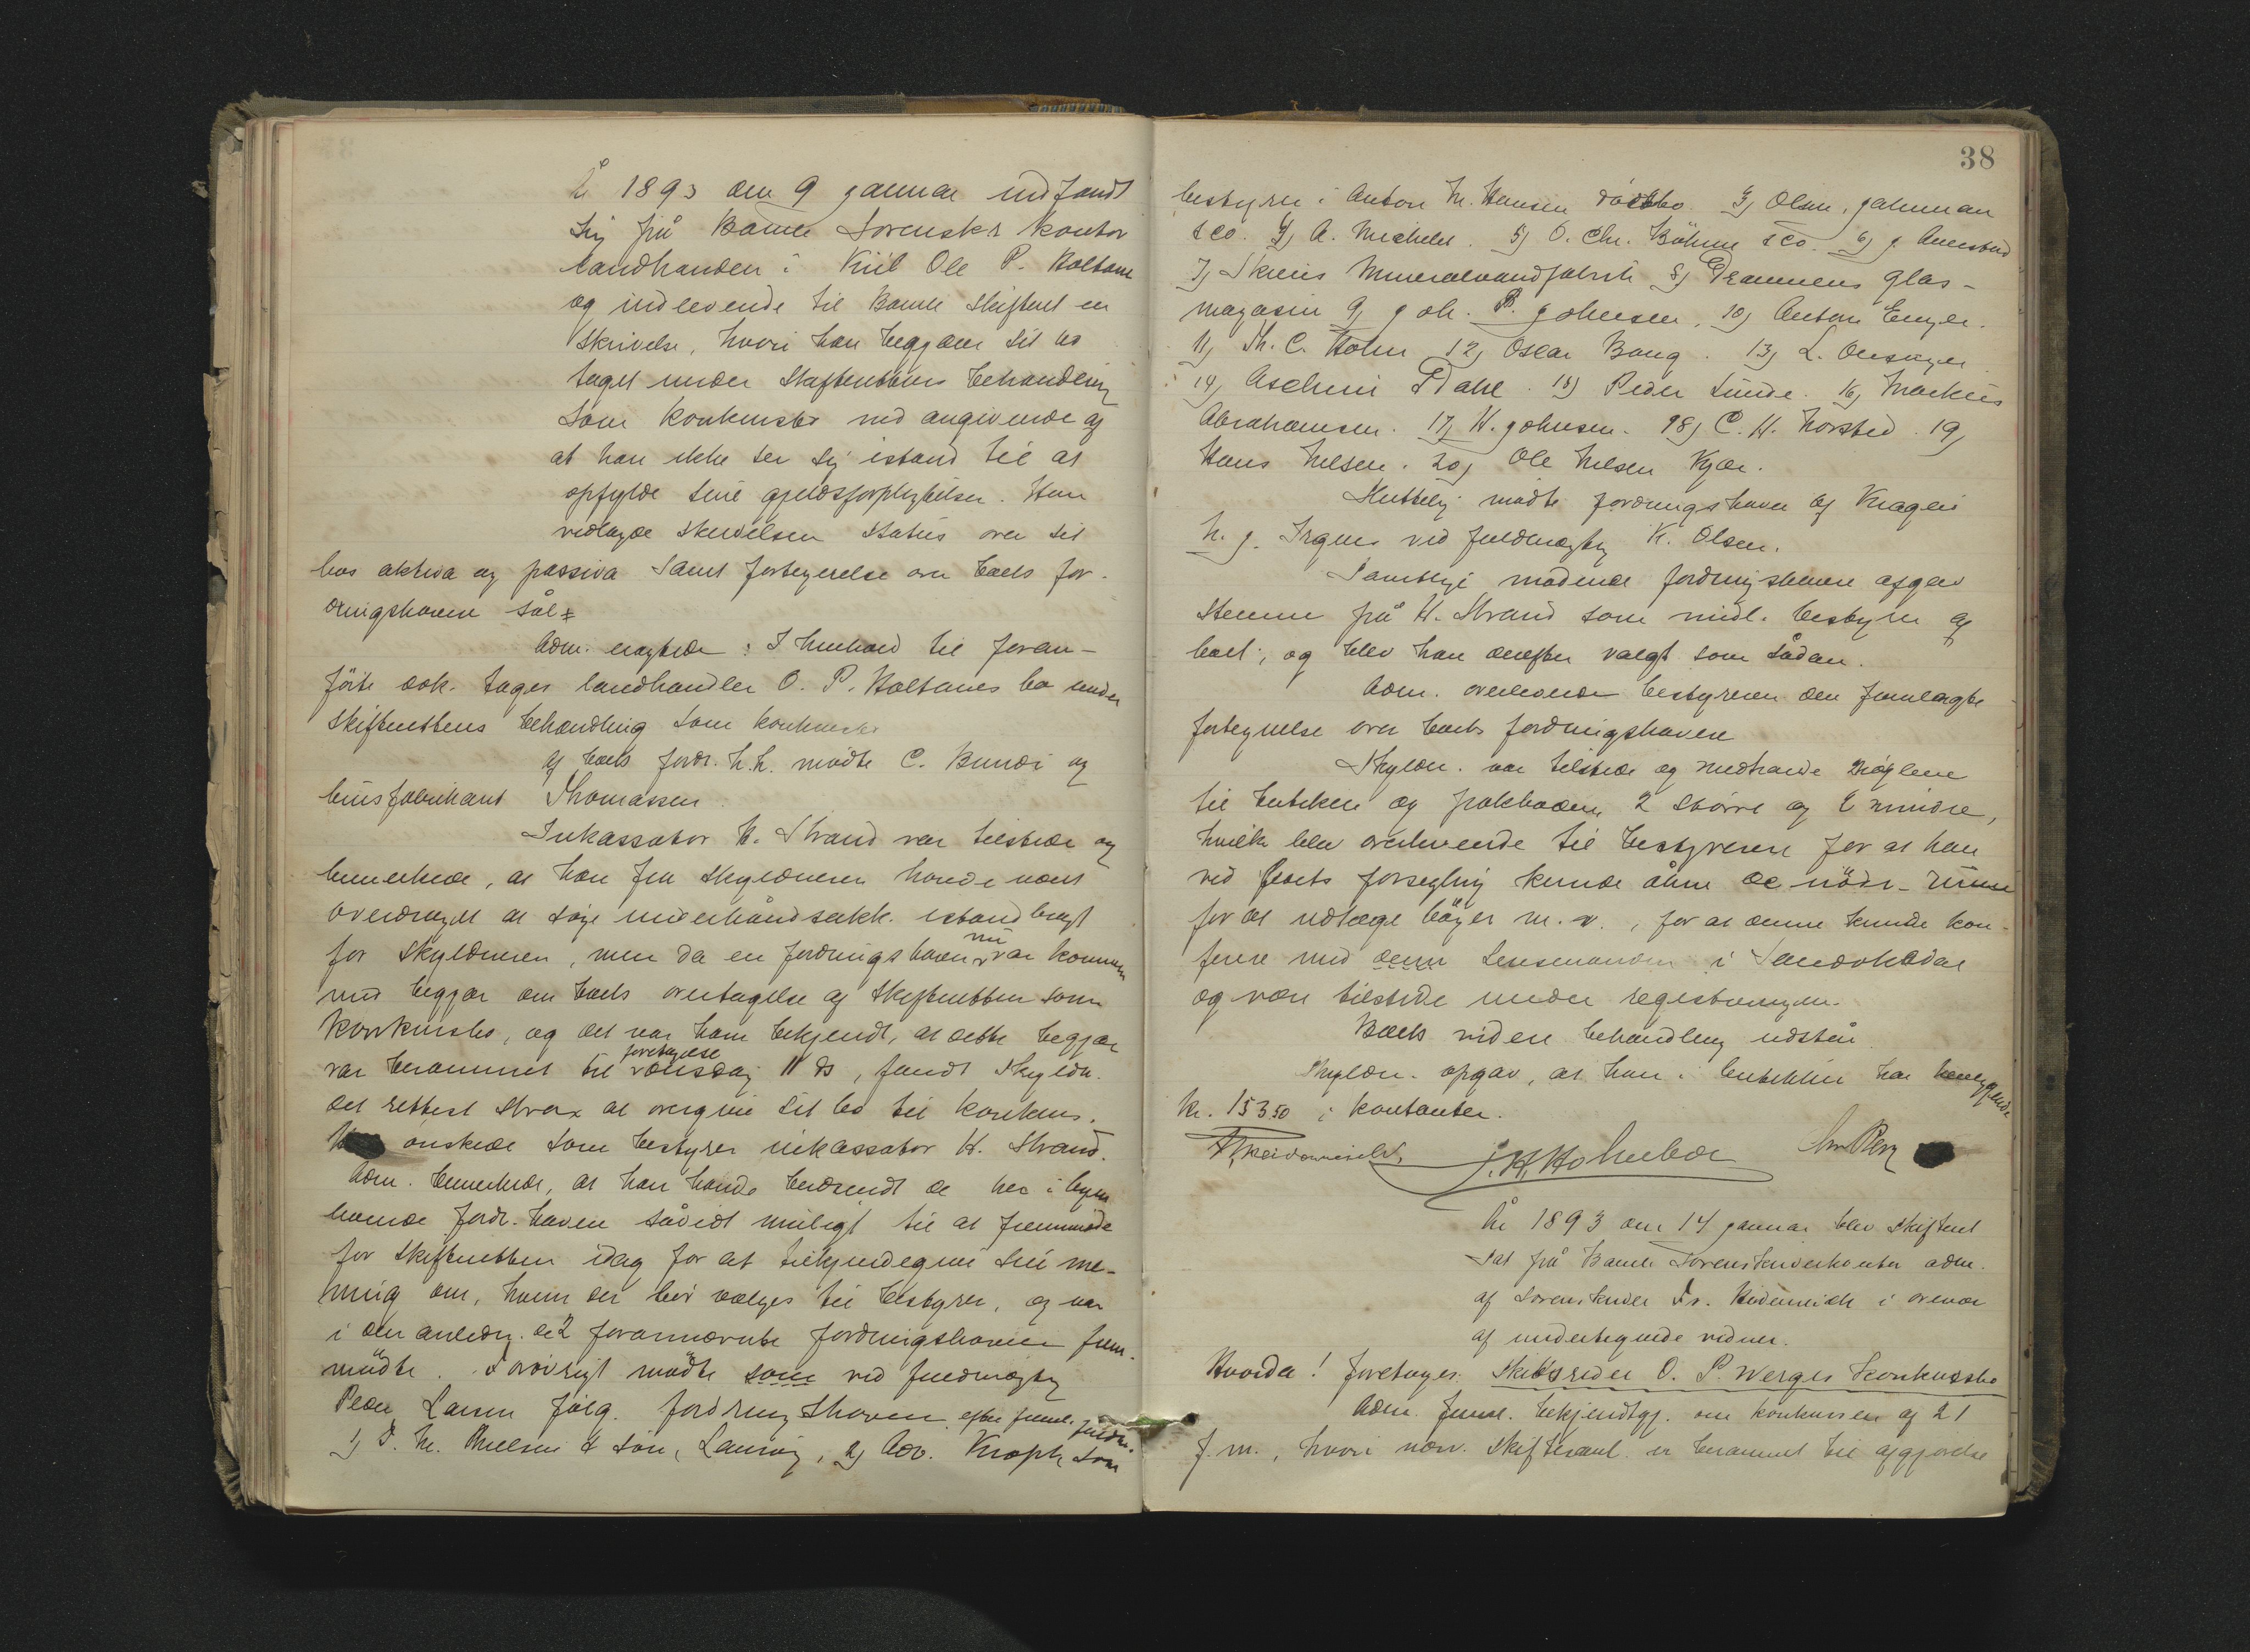 År 1893 den 9 januar indfandt
sig på Bamle Sorenskr kontor
landhandler i Kiil Ole P. Holtane
og indleverede til Bamle Skifteret en
skrivelse, hvori han begjærer sit bo
taget under Skifterettens behandling
som konkursbo ved angivende af
at han ikke ser sig istand til at
opfylde sine gjeldsforpligtelser. Han
vedlagde skrivelsen status over sit
bos aktiva og passiva samt fortegnelse over boets for-
dringshavere sål
Adm. eragtede: I henhold til foran-
förte dok. tages landhandler O. P. Holtanes bo under
Skifterettens behandling som konkursbo
Af boets fordr. h.h. mödte C. Bundi og
brusfabrikant Thomassen.
Inkassator H. Strand var tilstede og
bemerkede, at han fra skyldneren havde været
overdraget at söge underhåndsakk. istandbragt
for skyldneren, men da en fordringshaver nu var kommen
med begjær om boets overtagelse af Skifteretten som
konkursbo, og det var ham bekjendt, at dette begjær
var berammet til foretagelse onsdag 11 ds, fandt Skyldn.
det rettest strax at overgive sit bo til konkurs.
önskede som bestyrer inkassator H. Strand.
Adm. bemerkede, at han havde beskendt de her i byen
boende fordr.havere såvidt muligt til at fremmöde
for Skifteretten idag for at tilkjendegive sin me-
ning om, hvem der bör vælges til bestyrer, og var
i den anledn. de 2 forannævnte fordringshavere frem-
mödte. Forövrigt mödte som ved fuldmægtig
Peder Larsen fölg. fordringshavere efter freml. fuldm.
1) P. M. Nielsen & sön, Laurvig, 2) Adv. Knoph som
38
bestyrer i Anton M. Hansen dödsbo. 3) Olsen, Jahnman
& Co. 4) A. Michelet. 5) O. Chr. Böhme & Co. 6) J. Amesbud
7) Skiens Mineralvandfabrik 8) Drammens Glas-
magasin 9) Joh. P. Johnsen, 10) Anton Enger.
11) Th. C. Holm 12) Oscar Bang. 13) L. Onsager
14) Aschim Dahl. 15) Peder Sunde. 16) Markus
Abrahamsen. 17) H. Johnsen. 18) C. H. Morsted. 19)
Hans Nilsen. 20) Ole Nilsen Kjær.
Sluttelig mödte fordringshaver af Kragerö
N. J. Irgens ved fuldmægtig K. Olsen.
Samtlige mödende fordringshavere afgav
stemme på H. Strand som midl. bestyrer af
boet, og blev han derefter valgt som sådan.
Adm. overleverede bestyreren den fremlagte
fortegnelse over boets fordringshavere
Skyldn. var tilstede og medhavde nöglene
til butiken og pakboden, 2 större og 2 mindre,
hvilke blev overleverede til bestyreren for at han
ved boets forsegling kunde åbne de nödv. rum
for at udtage böger m. v., for at denne kunde kon-
ferere med denne lensmanden i Sandökedal
og være tilstede under registreringen.
Boets videre behandling udstår.
Skyldn. opgav, at han i butikken har beliggende
kr. 153 50 i kontanter.
J. K. Holmboe
År 1893 den 14 januar blev Skifteret
sat på Bamle Sorenskriverkontor adm.
af Sorenskriver Fr. Heidenreich i overvær
af undertegnede vidner.
Hvorda! foretoges: Skibsreder O. P. Werges konkursbo
Adm. freml. bekjendtgj. om konkursen af 21
f. m., hvori nærv. Skiftesaml. er berammet til afgjörelse